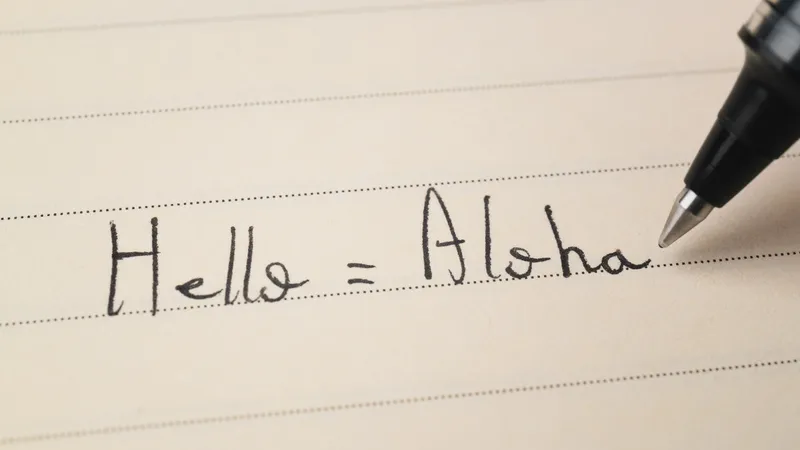 Hello = Aloha